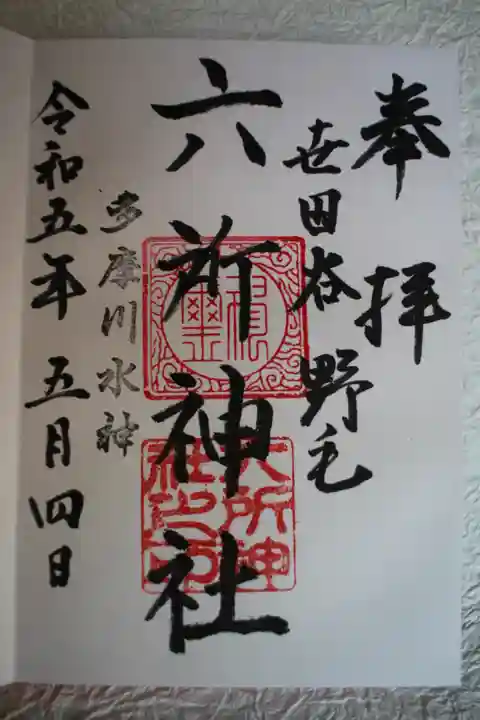 奉拝
世田谷野毛
六所神社
多摩川水神
令和五年五月四日
六所神
社之印